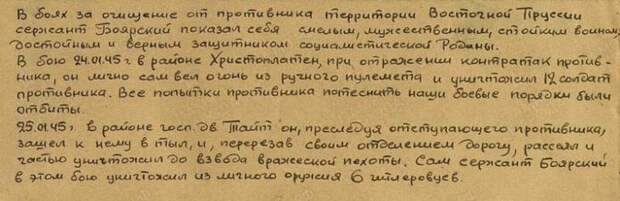 В боях за очищение от противника территории Восточной Пруссии
сержант Боярский показал себя смелым, мужественным, стойким воином,
достойным и верным защитником социалистической Родины.
В бою 24.01.45 г. в районе Христоплатен, при отражении контратак против-
ника, он лично сам вел огонь из ручного пулемета и уничтожил 12 солдат
противника. Все попытки противника потеснить наши боевые порядки были
отбиты.
25.01.45 г. в районе госп. дв. Тайт он, преследуя отступающего противника,
зашел к нему в тыл, и, перерезав своим отделением дорогу, рассеял и
частью уничтожил до взвода вражеской пехоты. Сам сержант Боярский
в этом бою уничтожил из личного оружия 6 гитлеровцев.